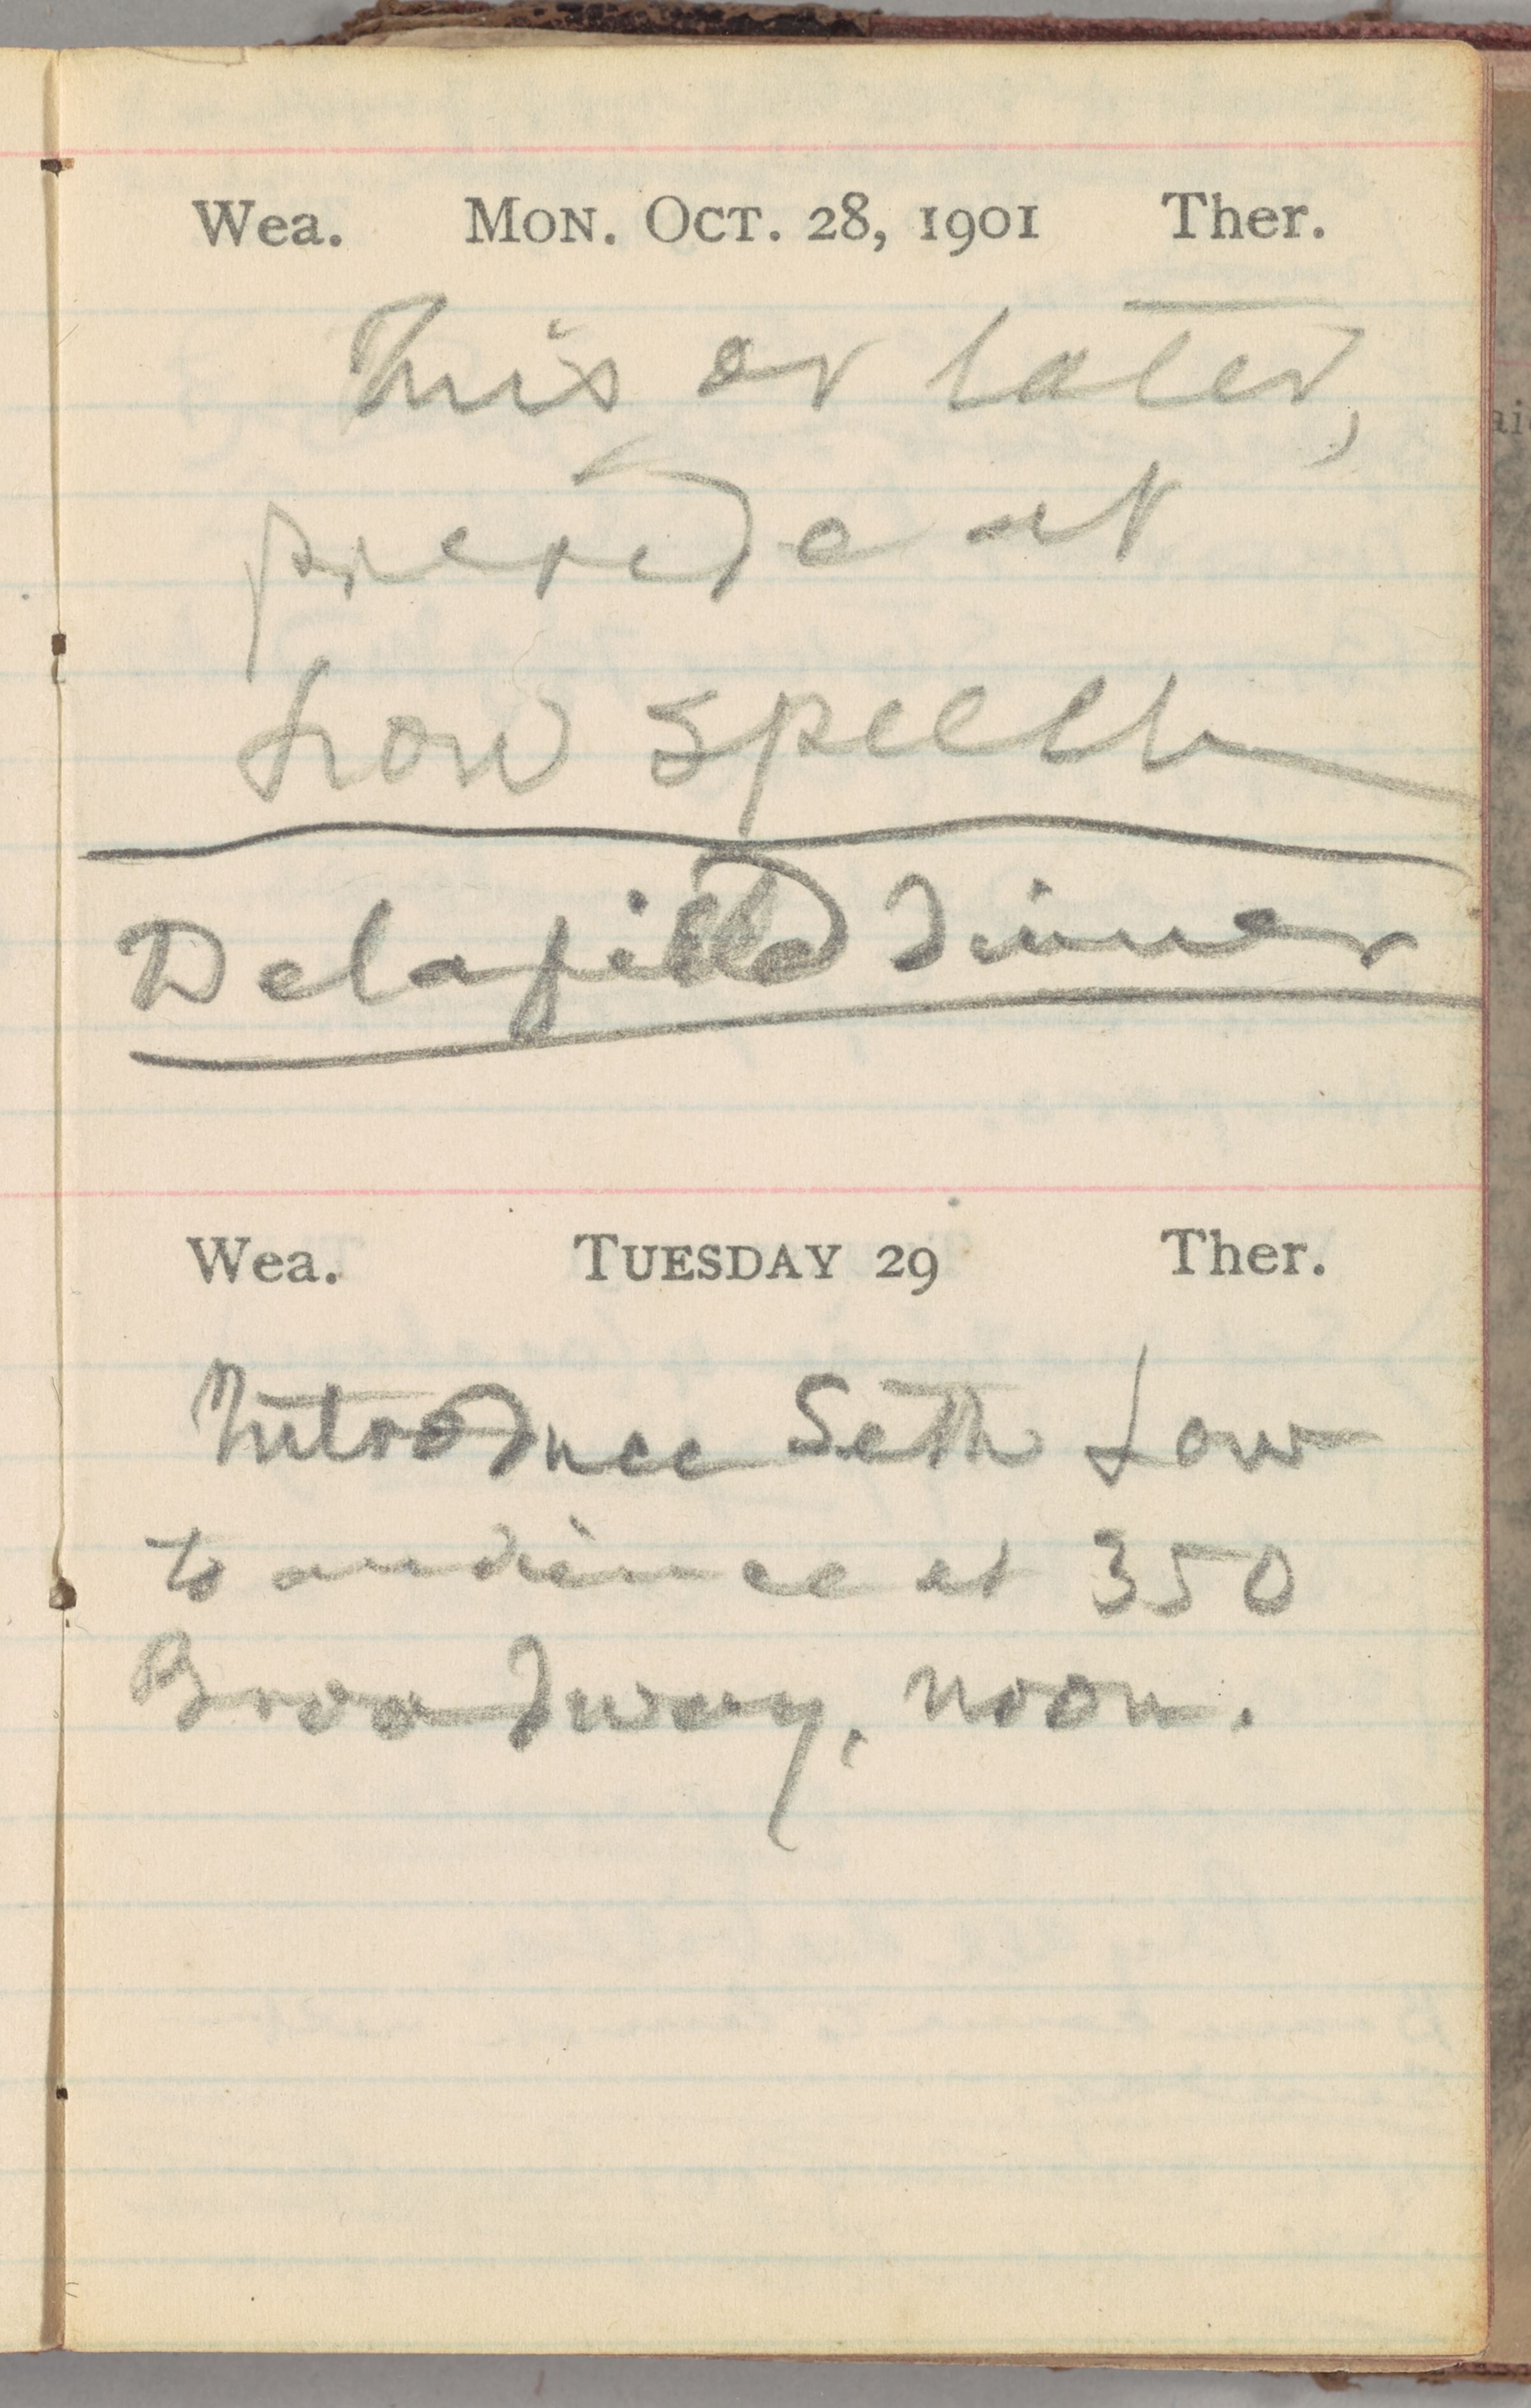 Wea. MON. OCT. 28, 1901 Ther.
This or later,
preside at
Low speech
Delafield dinner
Wea. TUESDAY 29 Ther.
Introduce Seth Low
to audience at 350
Broadway, noon.